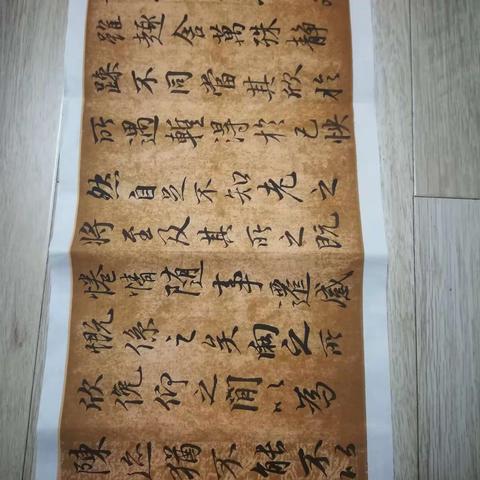 雖趣舍萬殊靜
躁不同當其欣於
所遇暫得於己快
然自足不知老之
將至及其所之既
惓情随事遷感
慨係之矣向之所
欣俛仰之間以為
陳迹猶不能不以